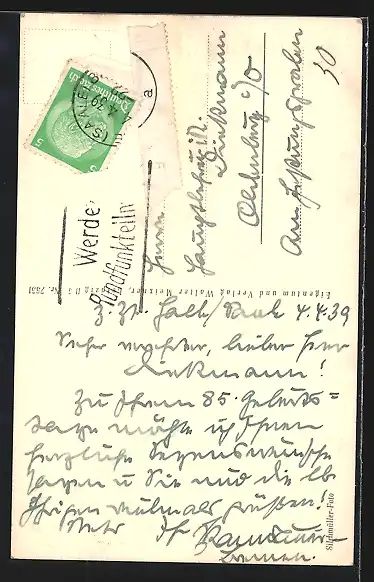 Deutsches Reich
5 5
(SAALE)
4.39
a
Werde
Rundfunkteiln
Herrn
Hauptlehrer i. R.
Diekmann
Oldenburg i/O
Am Festungsgraben
30
Eigentum und Verlag Walter Meixner, Leipzig
Z. Zt. Halle/Saale 4.4.39
Sehr verehrter, lieber Herr
Diekmann!
Zu Ihrem 85. Geburts=
tage möchte ich Ihnen
herzliche Segenswünsche
sagen u Sie und die lb
Ihrigen vielmals grüßen!
Stets Ihr
Bremen.
Silchmüller-Foto